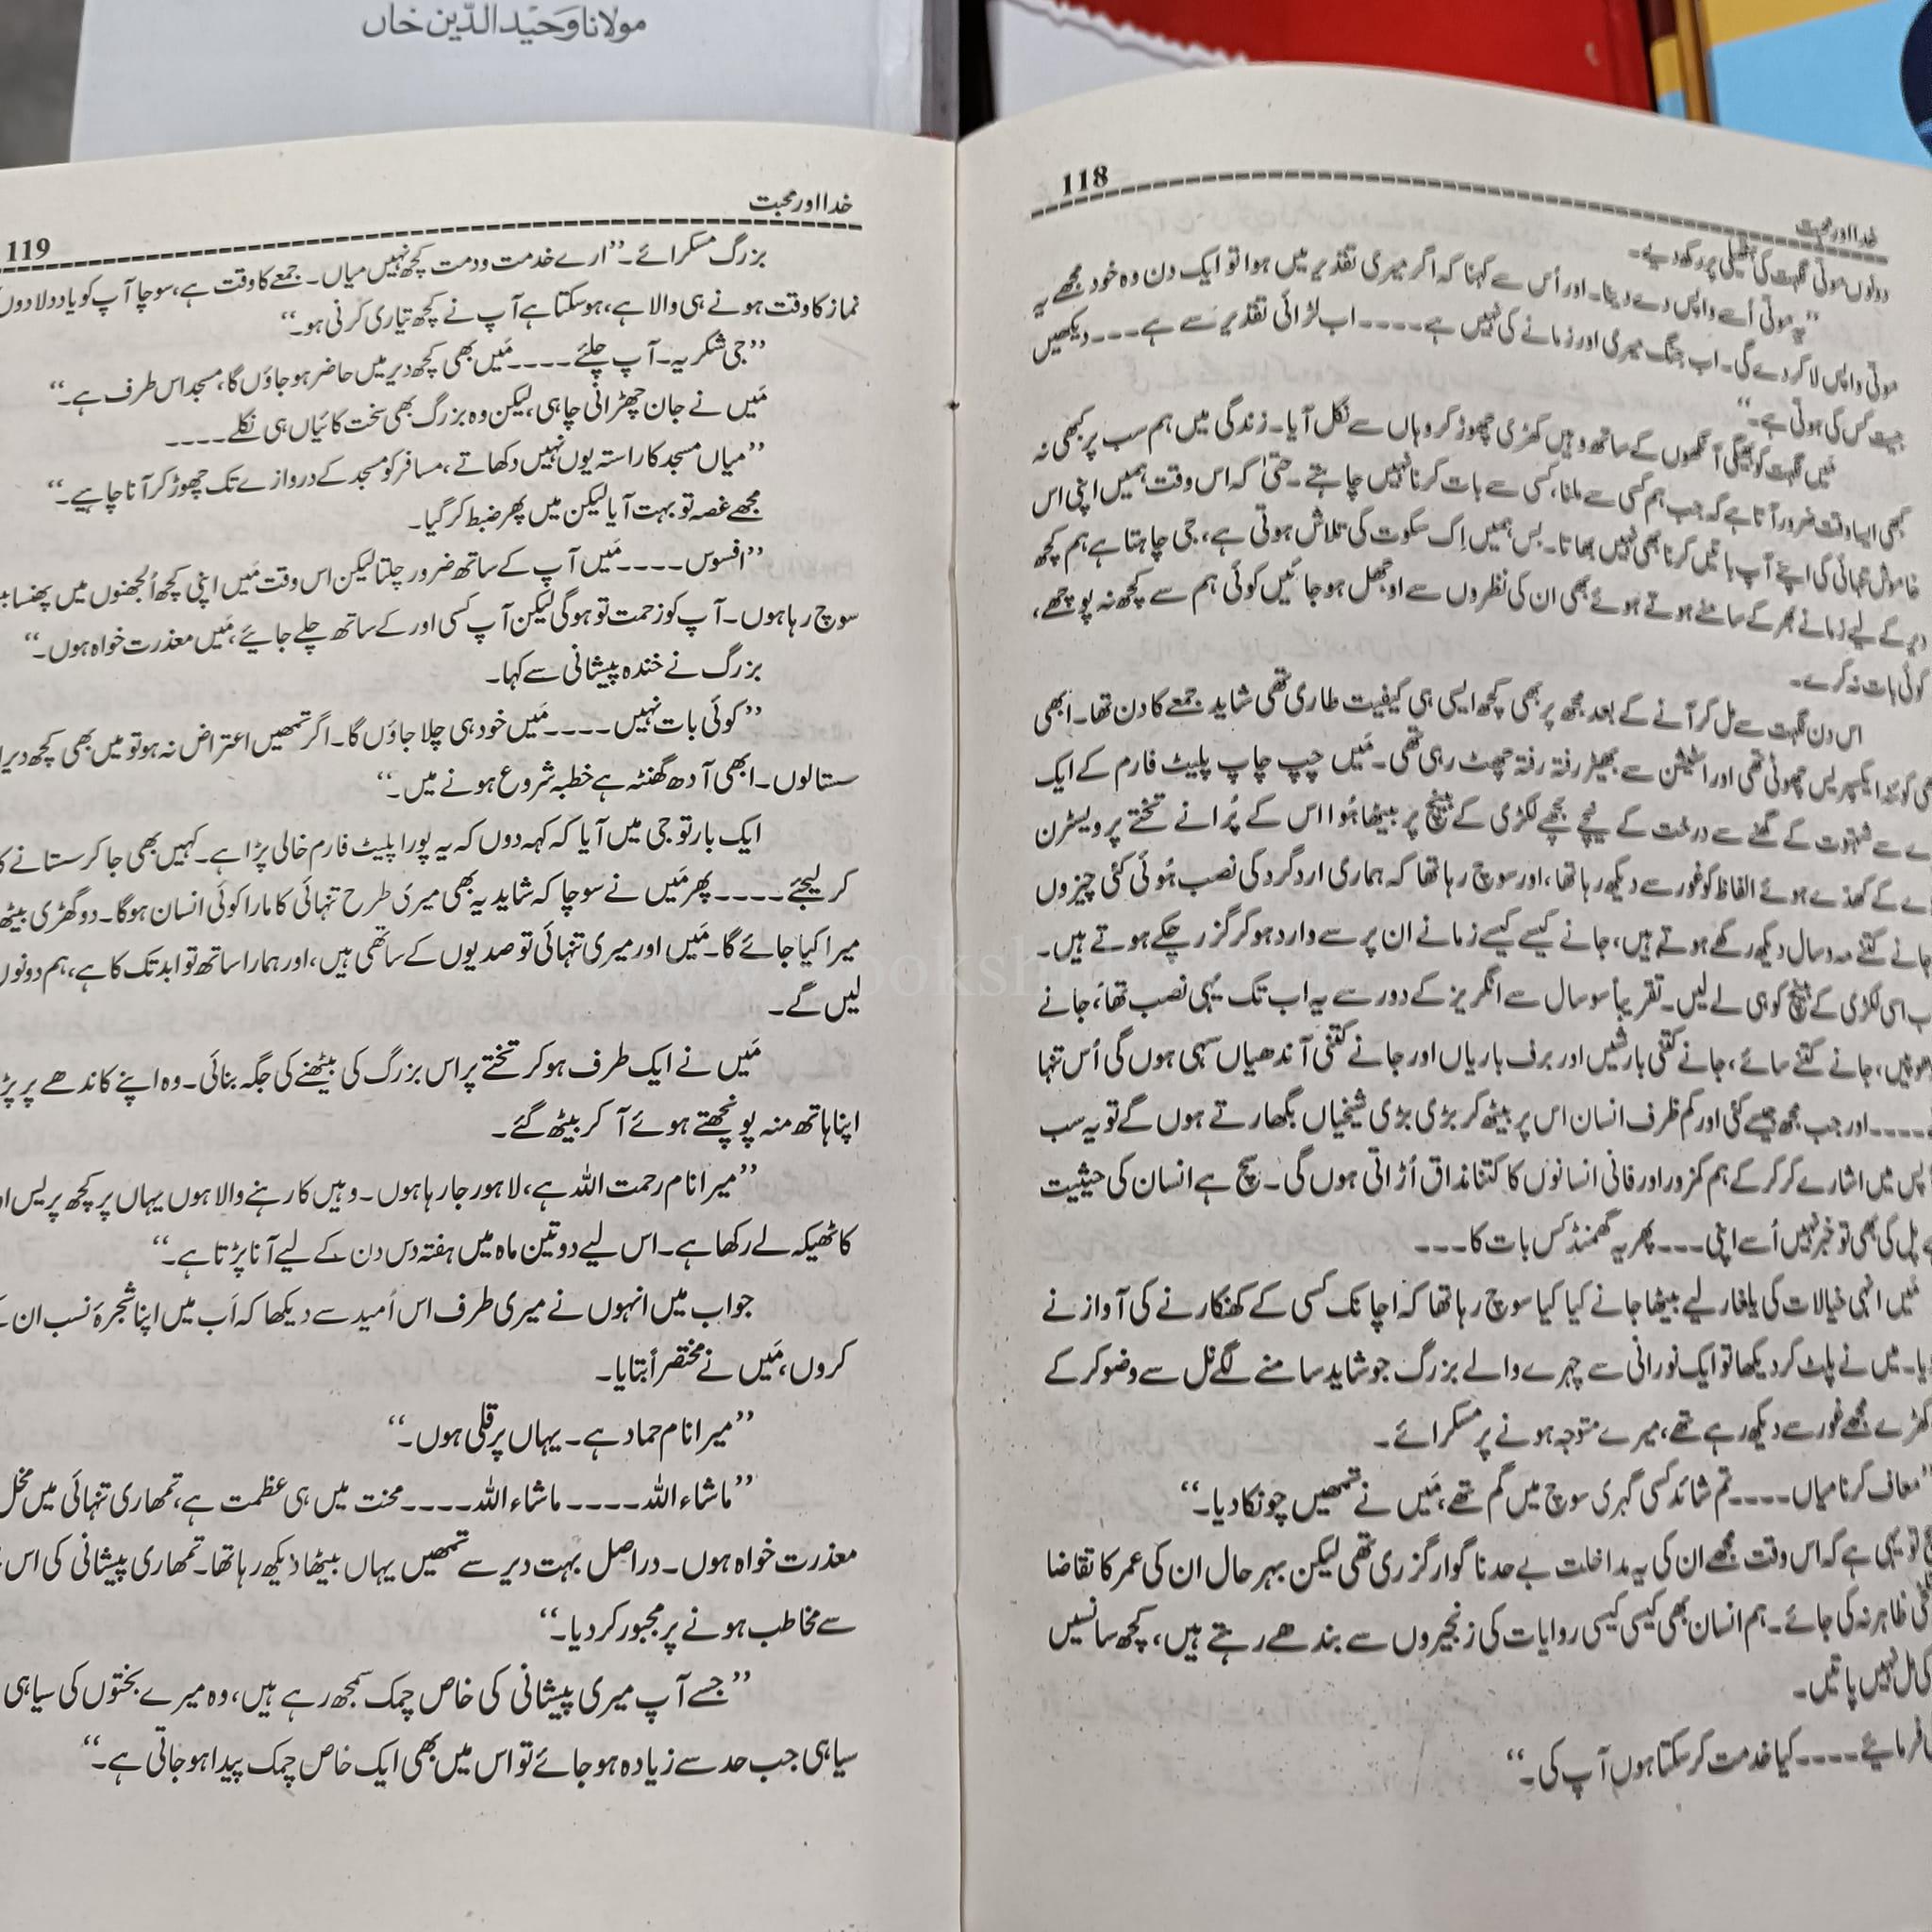 مولانا وحید الدین خاں
118
خدا اور محبت
دونوں موتی نگہت کی ہتھیلی پر رکھ دیے۔
”یہ موتی اُسے واپس دے دینا۔ اور اُس سے کہنا کہ اگر میری تقدیر میں ہوا تو ایک دن وہ خود مجھے یہ
موتی واپس لا کر دے گی۔ اب جنگ میری اور زمانے کی نہیں ہے۔۔۔۔ اب لڑائی تقدیر سے ہے۔۔۔ دیکھیں
جیت کس کی ہوتی ہے۔“
مَیں نگہت کو بھیگی آنکھوں کے ساتھ وہیں کھڑی چھوڑ کر وہاں سے نکل آیا۔ زندگی میں ہم سب پر کبھی نہ
کبھی ایسا وقت ضرور آتا ہے کہ جب ہم کسی سے ملنا، کسی سے بات کرنا نہیں چاہتے۔ حتیٰ کہ اس وقت ہمیں اپنی اس
خاموش تنہائی کی اپنے آپ باتیں کرنا بھی نہیں بھاتا۔ بس ہمیں اِک سکوت کی تلاش ہوتی ہے، جی چاہتا ہے ہم کچھ
دیر کے لیے زمانے بھر کے سامنے ہوتے ہوئے بھی ان کی نظروں سے اوجھل ہو جائیں کوئی ہم سے کچھ نہ پوچھے،
کوئی بات نہ کرے۔
اس دن نگہت سے مل کر آنے کے بعد مجھ پر بھی کچھ ایسی ہی کیفیت طاری تھی شاید جمعے کا دن تھا۔ ابھی
کوئٹہ ایکسپریس چھوٹی تھی اور اسٹیشن سے بھیڑ رفتہ رفتہ چھٹ رہی تھی۔ مَیں چپ چاپ پلیٹ فارم کے ایک
سے شہتوت کے گھنے سے درخت کے نیچے بچھے لکڑی کے بینچ پر بیٹھا ہُوا اس کے پُرانے تختے پر ویسٹرن
کے کھدے ہوئے الفاظ کو غور سے دیکھ رہا تھا، اور سوچ رہا تھا کہ ہماری اردگرد کی نصب ہُوئی کئی چیزوں
جانے کتنے مہ و سال دیکھ رکھے ہوتے ہیں، جانے کیسے کیسے زمانے ان پر سے وارد ہو کر گزر چکے ہوتے ہیں۔
اسی لکڑی کے بینچ کو ہی لے لیں۔ تقریباً سو سال سے انگریز کے دور سے یہ اب تک یُہی نصب تھا، جانے
جانے کتنے سائے، جانے کتنی بارشیں اور برف باریاں اور جانے کتنی آندھیاں سہی ہوں گی اُس تنہا
۔۔۔۔ اور جب مجھ جیسے کئی اور کم ظرف انسان اس پر بیٹھ کر بڑی بڑی شیخیاں بگھارتے ہوں گے تو یہ سب
میں اشارے کر کر کے ہم کمزور اور فانی انسانوں کا کتنا مذاق اُڑاتی ہوں گی۔ سچ ہے انسان کی حیثیت
پل کی بھی تو خبر نہیں اُسے اپنی۔۔۔ پھر یہ گھمنڈ کس بات کا۔۔۔
مَیں انہی خیالات کی یلغار لیے بیٹھا جانے کیا کیا سوچ رہا تھا کہ اچانک کسی کے کھنکارنے کی آواز نے
میں نے پلٹ کر دیکھا تو ایک نورانی سے چہرے والے بزرگ جو شاید سامنے لگے نل سے وضو کر کے
کھڑے مجھے غور سے دیکھ رہے تھے، میرے متوجہ ہونے پر مسکرائے۔
”معاف کرنا میاں۔۔۔۔ تم شائد کسی گہری سوچ میں گم تھے، مَیں نے تمھیں چونکا دیا۔“
تو یہی ہے کہ اس وقت مجھے ان کی یہ مداخلت بے حد ناگوار گزری تھی لیکن بہر حال ان کی عمر کا تقاضا
ظاہر نہ کی جائے۔ ہم انسان بھی کیسی کیسی روایات کی زنجیروں سے بندھے رہتے ہیں، کچھ سانسیں
مل نہیں پاتیں۔
فرمایئے۔۔۔۔ کیا خدمت کر سکتا ہوں آپ کی۔“
خدا اور محبت
119
بزرگ مسکرائے۔ ”ارے خدمت ودمت کچھ نہیں میاں۔ جمعے کا وقت ہے، سوچا آپ کو یاد دلا دوں
نماز کا وقت ہونے ہی والا ہے، ہو سکتا ہے آپ نے کچھ تیاری کرنی ہو۔“
”جی شکریہ۔ آپ چلئے۔۔۔۔ مَیں بھی کچھ دیر میں حاضر ہو جاؤں گا، مسجد اس طرف ہے۔“
مَیں نے جان چھڑانی چاہی، لیکن وہ بزرگ بھی سخت کائیاں ہی نکلے۔۔۔۔
”میاں مسجد کا راستہ یوں نہیں دکھاتے، مسافر کو مسجد کے دروازے تک چھوڑ کر آنا چاہیے۔“
مجھے غصہ تو بہت آیا لیکن میں پھر ضبط کر گیا۔
”افسوس۔۔۔۔ مَیں آپ کے ساتھ ضرور چلتا لیکن اس وقت مَیں اپنی کچھ اُلجھنوں میں پھنسا
سوچ رہا ہوں۔ آپ کو زحمت تو ہو گی لیکن آپ کسی اور کے ساتھ چلے جایئے، مَیں معذرت خواہ ہوں۔“
بزرگ نے خندہ پیشانی سے کہا۔
”کوئی بات نہیں۔۔۔۔ مَیں خود ہی چلا جاؤں گا۔ اگر تمھیں اعتراض نہ ہو تو میں بھی کچھ دیر
ستا لوں۔ ابھی آدھ گھنٹہ ہے خطبہ شروع ہونے میں۔“
ایک بار تو جی میں آیا کہ کہہ دوں کہ یہ پورا پلیٹ فارم خالی پڑا ہے۔ کہیں بھی جا کر سستانے
کر لیجئے۔۔۔۔ پھر مَیں نے سوچا کہ شاید یہ بھی میری طرح تنہائی کا مارا کوئی انسان ہوگا۔ دو گھڑی بیٹھ
میرا کیا جائے گا۔ مَیں اور میری تنہائی تو صدیوں کے ساتھی ہیں، اور ہمارا ساتھ تو ابد تک کا ہے، ہم دونوں
لیں گے۔
مَیں نے ایک طرف ہو کر تختے پر اس بزرگ کی بیٹھنے کی جگہ بنائی۔ وہ اپنے کاندھے پر
اپنا ہاتھ منہ پونچھتے ہوئے آ کر بیٹھ گئے۔
”میرا نام رحمت اللہ ہے، لاہور جا رہا ہوں۔ وہیں کا رہنے والا ہوں یہاں پر کچھ پریس
کا ٹھیکہ لے رکھا ہے۔ اس لیے دو تین ماہ میں ہفتہ دس دن کے لیے آنا پڑتا ہے۔“
جواب میں انہوں نے میری طرف اس اُمید سے دیکھا کہ اَب میں اپنا شجرۂ نسب ان
کروں، مَیں نے مختصراً بتایا۔
”میرا نام حماد ہے۔ یہاں پر قلی ہوں۔“
”ماشاء اللہ۔۔۔۔ ماشاء اللہ۔۔۔۔ محنت میں ہی عظمت ہے، تمھاری تنہائی میں مخل
معذرت خواہ ہوں۔ دراصل بہت دیر سے تمھیں یہاں بیٹھا دیکھ رہا تھا۔ تمھاری پیشانی کی اس
سے مخاطب ہونے پر مجبور کر دیا۔“
”جسے آپ میری پیشانی کی خاص چمک سمجھ رہے ہیں، وہ میرے بختوں کی سیاہی
سیاہی جب حد سے زیادہ ہو جائے تو اس میں بھی ایک خاص چمک پیدا ہو جاتی ہے۔“